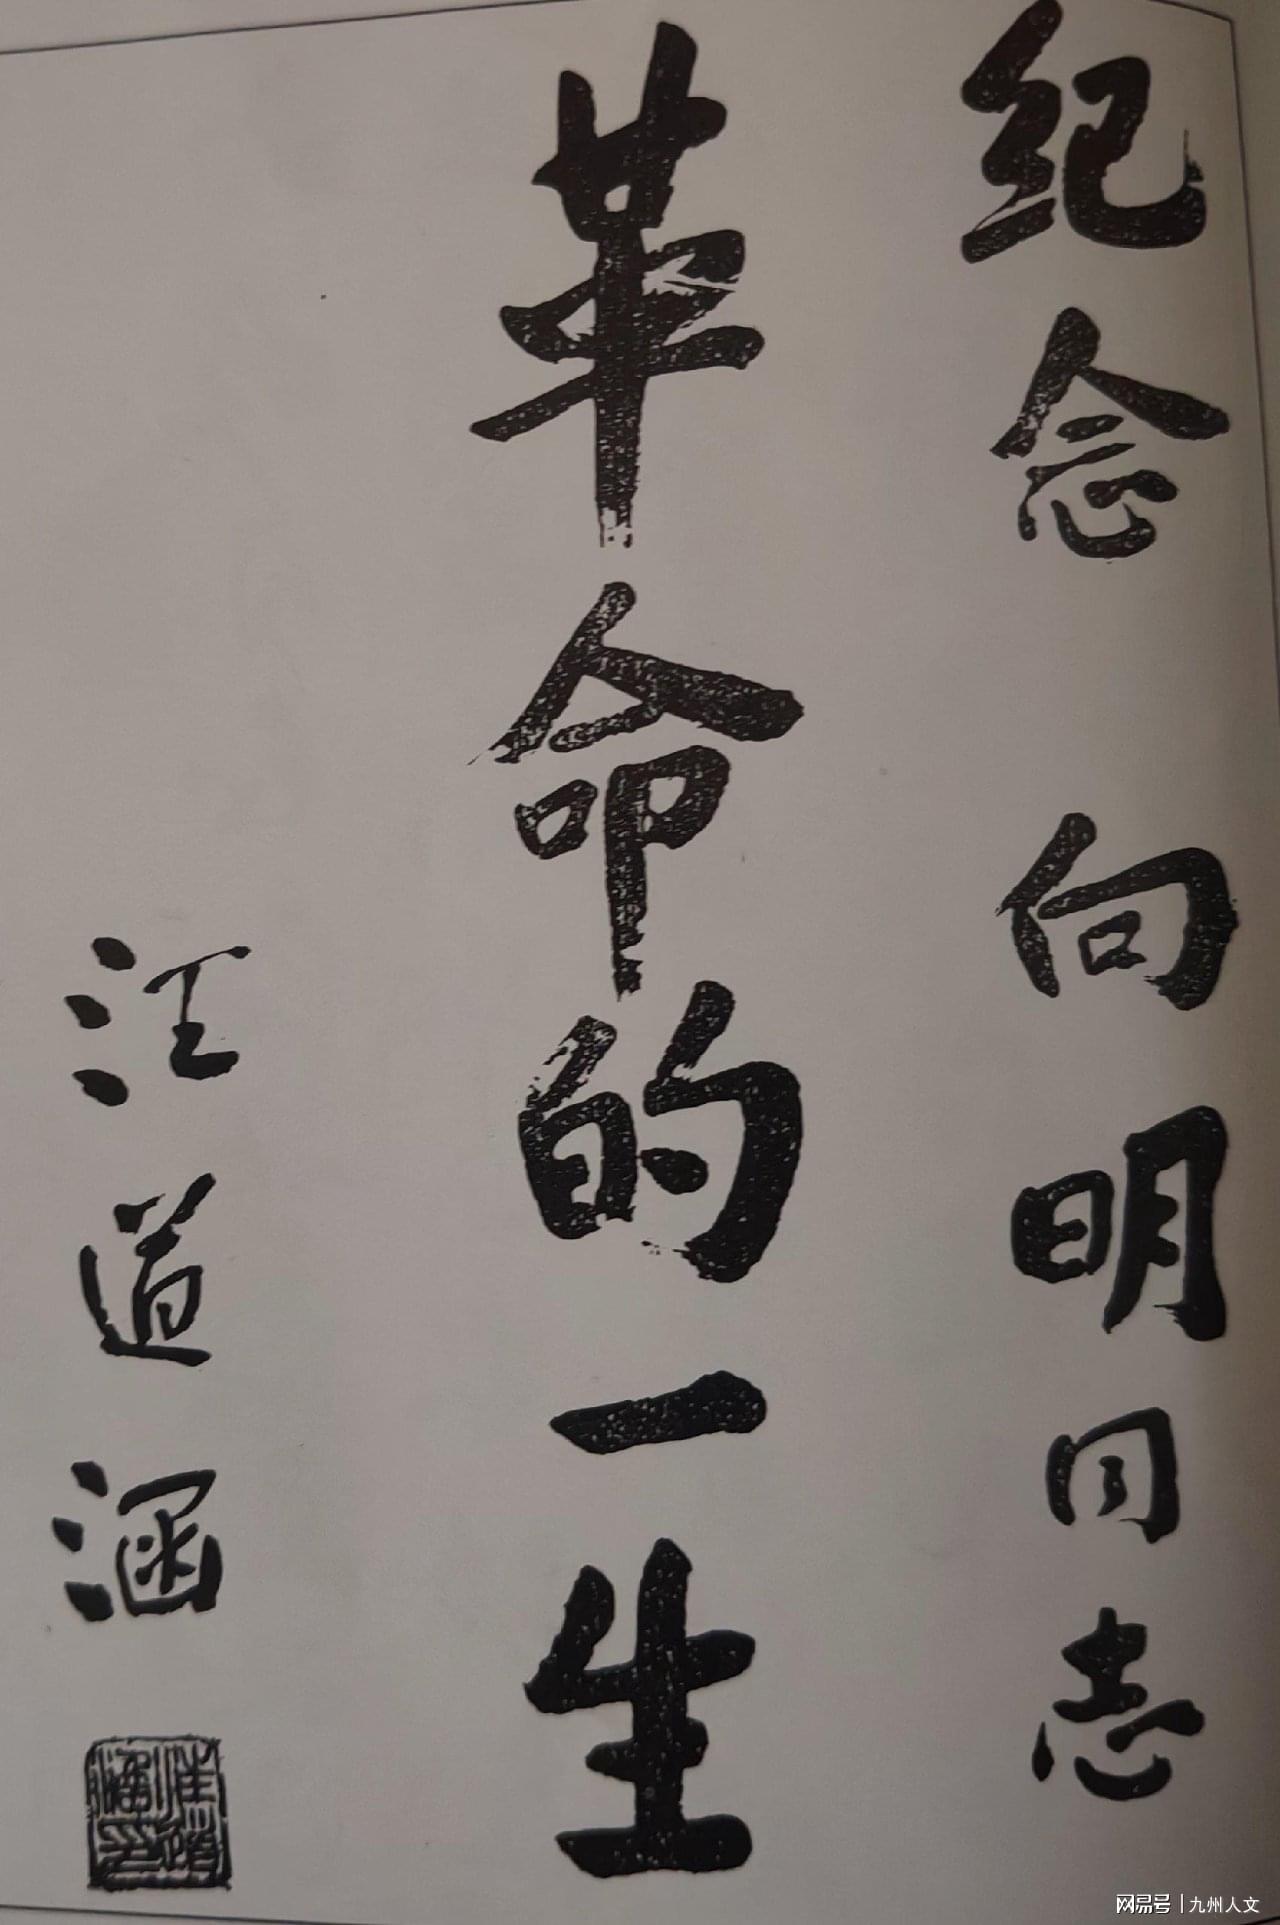 纪念 向明同志
革命的一生
汪道涵
网易号 | 九州人文